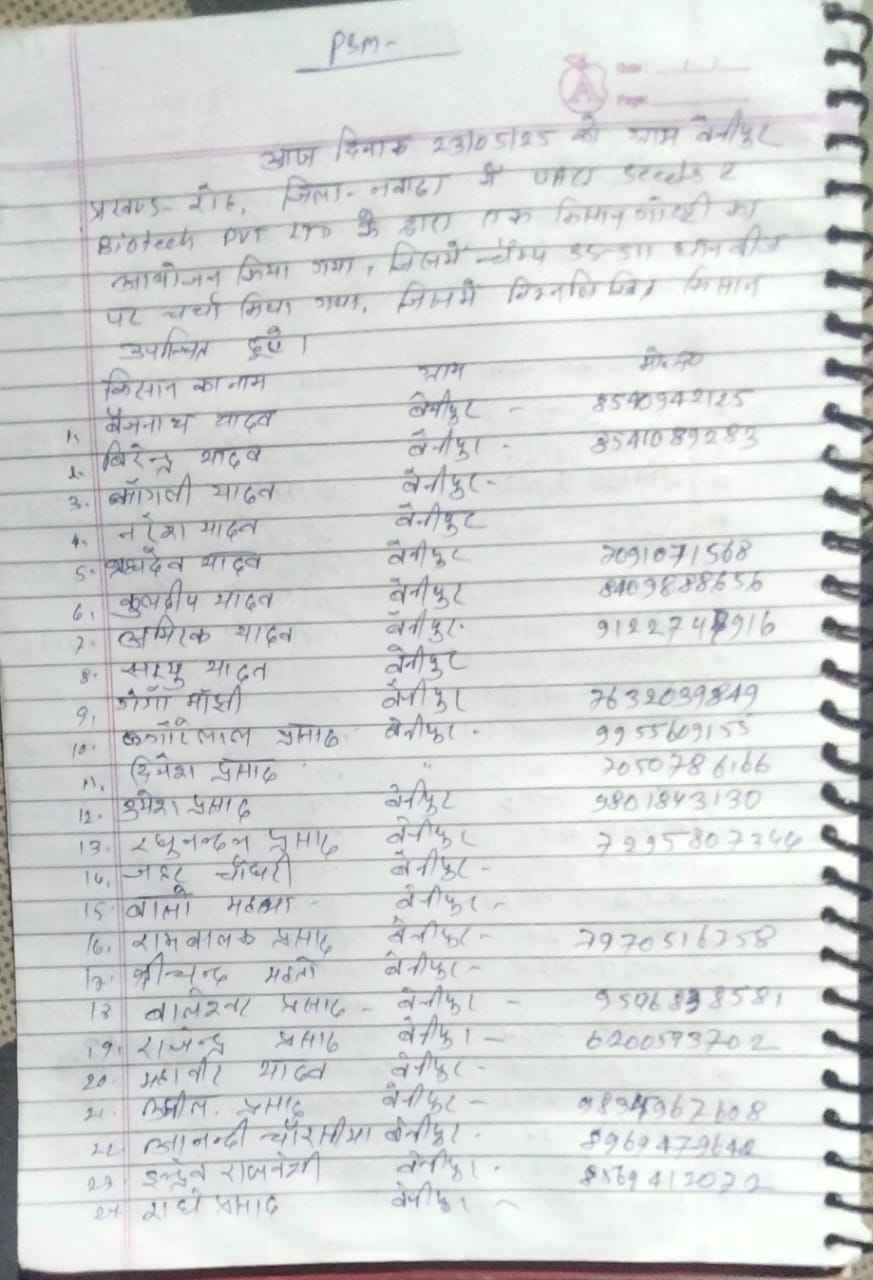 PSM-
Date : / /
Page
आज दिनांक 23/05/25 को ग्राम बेनीपुर
प्रखण्ड- रोह, जिला- नवादा में Seeds
Biotech PVT LTD के द्वारा एक किसान गोष्ठी का
आयोजन किया गया, जिसमें धान बीज
पर चर्चा किया गया, जिसमें निम्नलिखित किसान
उपस्थित हुऐ।
किसान का नाम ग्राम मो० नं०
1. बैजनाथ यादव बेनीपुर - 8540942125
2. बिरेन्द्र यादव बेनीपुर - 8541089283
3. यादव बेनीपुर-
4. नरेश यादव बेनीपुर
5. यादव बेनीपुर 7091071568
6. कुलदीप यादव बेनीपुर 8409888656
7. यादव बेनीपुर. 9122748916
8. सरयु यादव बेनीपुर
9. माँझी बेनीपुर 7632039849
10. प्रसाद बेनीपुर - 9955609155
11. दिनेश प्रसाद " 7050786166
12. उमेश प्रसाद बेनीपुर 9801843130
13. रघुनन्दन प्रसाद बेनीपुर
14. चौधरी बेनीपुर -
15. बेनीपुर -
16. रामबालक प्रसाद बेनीपुर - 7970516758
17. श्रीचन्द महतो बेनीपुर -
18 प्रसाद - बेनीपुर -
19. राजेन्द्र प्रसाद बेनीपुर - 6200593702
20. महावीर यादव बेनीपुर -
21. प्रसाद बेनीपुर -
22. आनन्दी चौरसीया बेनीपुर -
23. राजवंशी बेनीपुर - 8569412072
24. राधे प्रसाद बेनीपुर -